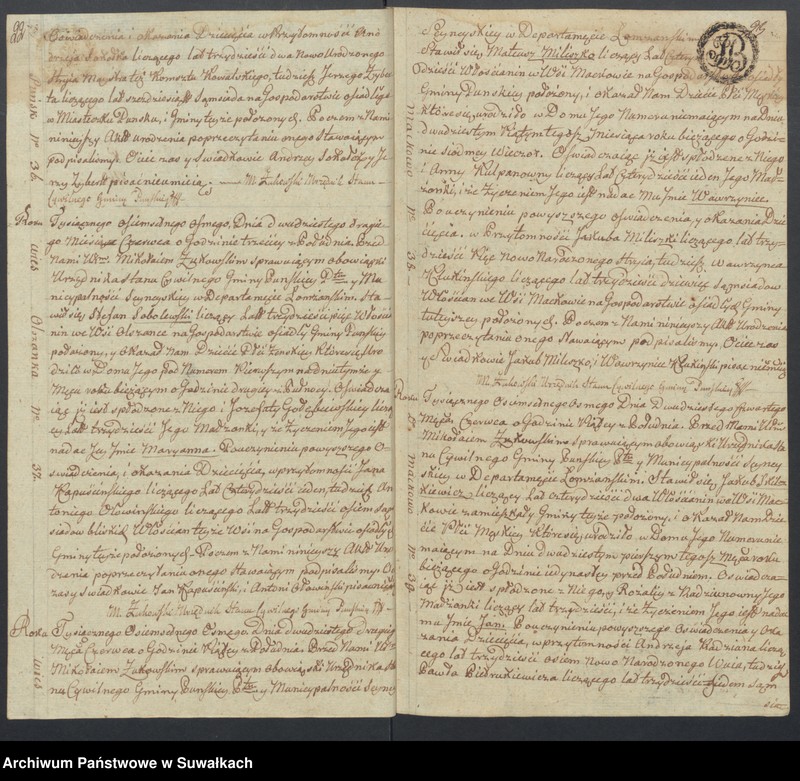 Oświadczenia i okazania Dziecięcia w Przytomności And
rzeja Sokołka liczącego Lat trzydzieści dwa Nowo Urodzonego
Stryja Męża tej Konszta Kowalskiego, tudzież Jerzego Żyber
ta liczącego Lat sześćdziesiąt Sąmsiada na Gospodarstwie osiadłego
w Miasteczku Puńsku, i Gminy tejże położonych. Poczem z Nami
niniejszy Akt urodzenia po przeczytaniu onego Stawającym
podpisaliśmy. Ociec zaś y Swiadkowie Andrzej Sokołek y Je
rzy Żybert pisać nieumieią. M. Żukowski Urzędnik Stanu
Cywilnego Gminy Puńskiey
Puńsk Nr 36
Roku Tysiącznego osiemsetnego osmego, Dnia dwudziestego drugie
go Miesiąca Czerwca o Godzinie trzeciey z Południa. Przed
Nami Mikołaiem Żukowskim sprawującym obowiązki
Urzędnika Stanu Cywilnego Gminy Puńskiey Ptu y Mu
nicypalności Seyneyskiey w Departamęcie Łomżańskim. Sta
wił się Stefan Sobolewski liczący Latt trzydzieści pięć Włościa
nin we Wsi Olszance na Gospodarstwie osiadły Gminy Puńskiey
położony, y okazał Nam Dziecie Płci Żenskiey które się Uro
dziło w Domu Jego Pod Numerem Pierwszym na dniu tymże y
Mcca roku bieżącym o Godzinie drugiey z Pułnocy. Oświadcza
iąc iż iest spłodzone z Niego i Jozefaty Gołębiewskiey liczą
cey Latt trzydzieści Jego Małżonki, y że Życzeniem Jego iest
nadać Jey Jmie Maryanna. Po uczynieniu powyższego O
świadczenia, i okazania Dziecięcia, w przytomności Jana
Kapuścińskiego liczącego Lat Czterdzieści ieden, tudzież An
toniego Słowińskiego liczącego Latt trzydzieści osiem Sąm
siadów bliskich Włościan tejże Wsi na Gospodarstwie osiadłych
Gminy tejże położonych. Poczem z Nami niniejszy Akt Uro
dzenia po przeczytaniu onego Stawającym podpisaliśmy. O
zaś y Swiadkowie Jan Kapuściński, i Antoni Słowiński pisać nieumieią
M. Żukowski Urzędnik Stanu Cywilnego Gminy Puńskiey
wieś Olszanka Nr 37.
Roku Tysiącznego Osiemsetnego Osmego, Dnia dwudziestego drugiego
Mcca Czerwca o Godzinie Piątey z Południa. Przed Nami
Mikołaiem Żukowskim sprawującym obowiązki Urzędnika Sta
nu Cywilnego Gminy Puńskiey Ptu y Municypalności Seyney
wieś
Seyneyskiey w Departamęcie Łomżańskim
Stawił się, Mateusz Miliszko liczący Lat Czter
dzieści Włościanin w Wsi Maćkowie na Gospodarstwie osiadły
Gminy Puńskiey położony, i okazał Nam Dziecie Płci Męskiey
które się urodziło w Domu Jego Numeru niemaiącym na Dniu
dwudziestym tegoż Miesiąca roku bieżącego o Godzi
nie siódmey Wieczor. Oświadczając iż iest spłodzone z Niego
i Anny Kulpanowny liczącey Lat Czterdzieści ieden Jego Mał
żonki, i że Życzeniem Jego iest nadać Mu Jmie Wawrzyniec.
Po uczynieniu powyższego oświadczenia y okazania Dzie
cięcia, w Przytomności Jakuba Miliszki liczącego lat trzy
dzieści Pięć Nowo Narodzonego Stryja, tudzież Wawrzynca
Kłukińskiego liczącego lat trzydzieści dziewięć Sąmsiadów
Włościan we Wsi Maćkowie na Gospodarstwie osiadłych Gminy
tutejszey położonych. Poczem z Nami ninieyszy Akt Urodzenia
po przeczytaniu onego Stawającym podpisaliśmy. Ociec zaś
y Swiadkowie Jakub Miliszko, i Wawrzyniec Kłukiński pisać nieumieią
M. Żukowski Urzędnik Stanu Cywilnego Gminy Puńskiey
Maćkowo Nr 38
Roku Tysiącznego Osiemsetnego Osmego Dnia Dwudziestego Czwartego
Mcca Czerwca o Godzinie Piątey z Południa. Przed Nami
Mikołaiem Żukowskim sprawującym obowiązki Urzędnika Sta
nu Cywilnego Gminy Puńskiey Ptu y Municypalności Seyney
skiey w Departamęcie Łomżańskim. Stawił się, Jakub
kiewicz liczący Lat czterdzieści dwa Włościanin we Wsi Mać
kowie zamieszkały Gminy tejże położony, i okazał Nam Dzie
cie Płci Męskiey które się urodziło w Domu Jego Numeru nie
maiącym na Dniu dwudziestym pierwszym tegoż Mcca roku
bieżącego o Godzinie iedynastey przed Południem. Oświadcza
iąc iż iest spłodzone z Niego, y Rozalij z Radziunowny Jego
Małżonki liczącey lat trzydzieści, i że życzeniem Jego iest nadać
mu Jmie Jan. Po uczynieniu powyższego Oświadczenia y Oka
zania Dziecięcia, w przytomności Andrzeja Radziana licz
cego lat trzydzieści osiem Nowo Narodzonego Wuia, tudzież
Pawła Piedrukiewicza liczącego lat trzydzieści siedem Sąm
sia
wieś Maćkowo Nr 39
Archiwum Państwowe w Suwałkach